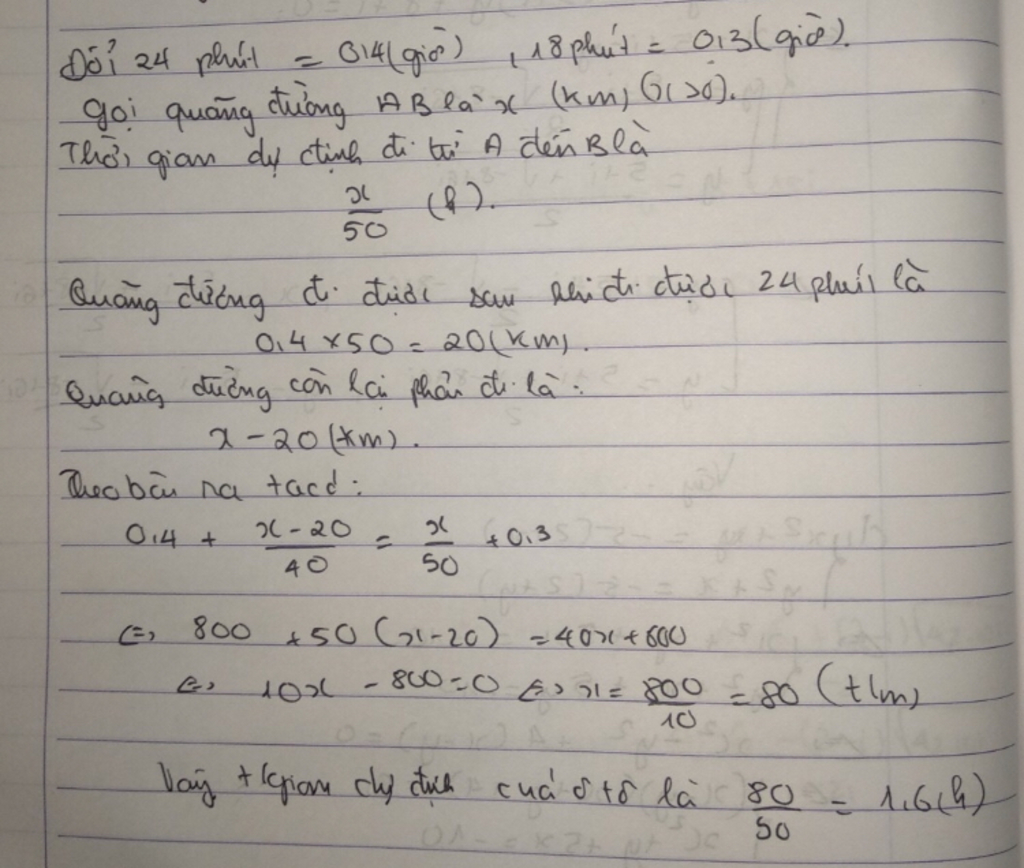 Đổi 24 phút = 0,4 (giờ) , 18 phút = 0,3 (giờ).
Gọi quãng đường AB là x (km) (x>0).
Thời gian dự định đi từ A đến B là
x/50 (h).
Quãng đường đi được sau khi đi được 24 phút là
0,4 × 50 = 20 (km).
Quãng đường còn lại phải đi là:
x - 20 (km).
Theo bài ra ta có:
0.4 + (x - 20)/40 = x/50 + 0.3
⇔ 800 + 50 (x - 20) = 40x + 600
⇔ 10x - 800 = 0 ⇔ x = 800/10 = 80 (t/m)
Vậy t/gian dự định của ô tô là 80/50 = 1.6 (h)